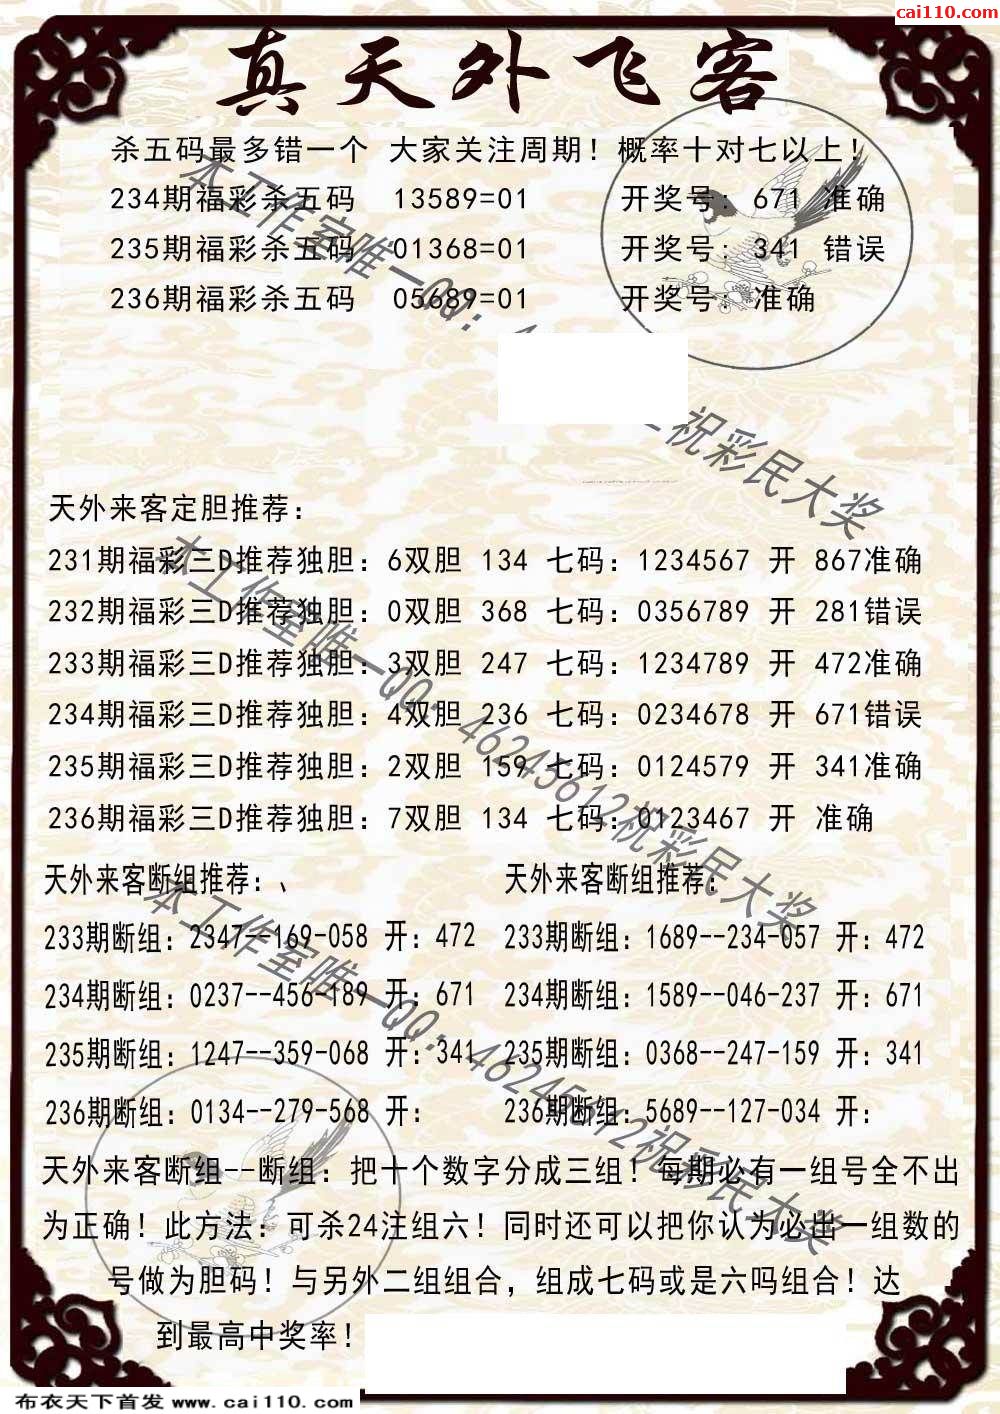 cai110.com
真天外飞客
杀五码最多错一个 大家关注周期！概率十对七以上！
234期福彩杀五码 13589=01 开奖号：671 准确
235期福彩杀五码 01368=01 开奖号：341 错误
236期福彩杀五码 05689=01 开奖号：准确
本工作室唯一QQ：
祝彩民大奖
天外来客定胆推荐：
231期福彩三D推荐独胆：6双胆 134 七码：1234567 开 867准确
232期福彩三D推荐独胆：0双胆 368 七码：0356789 开 281错误
233期福彩三D推荐独胆：3双胆 247 七码：1234789 开 472准确
234期福彩三D推荐独胆：4双胆 236 七码：0234678 开 671错误
235期福彩三D推荐独胆：2双胆 159 七码：0124579 开 341准确
236期福彩三D推荐独胆：7双胆 134 七码：0123467 开 准确
本工作室唯一QQ：46245612祝彩民大奖
天外来客断组推荐：、 天外来客断组推荐：
233期断组：2347--169-058 开：472 233期断组：1689--234-057 开：472
234期断组：0237--456-189 开：671 234期断组：1589--046-237 开：671
235期断组：1247--359-068 开：341 235期断组：0368--247-159 开：341
236期断组：0134--279-568 开： 236期断组：5689--127-034 开：
本工作室唯一QQ：46245612祝彩民大奖
天外来客断组--断组：把十个数字分成三组！每期必有一组号全不出
为正确！此方法：可杀24注组六！同时还可以把你认为必出一组数的
号做为胆码！与另外二组组合，组成七码或是六吗组合！达
到最高中奖率！
布衣天下首发 www.cai110.com